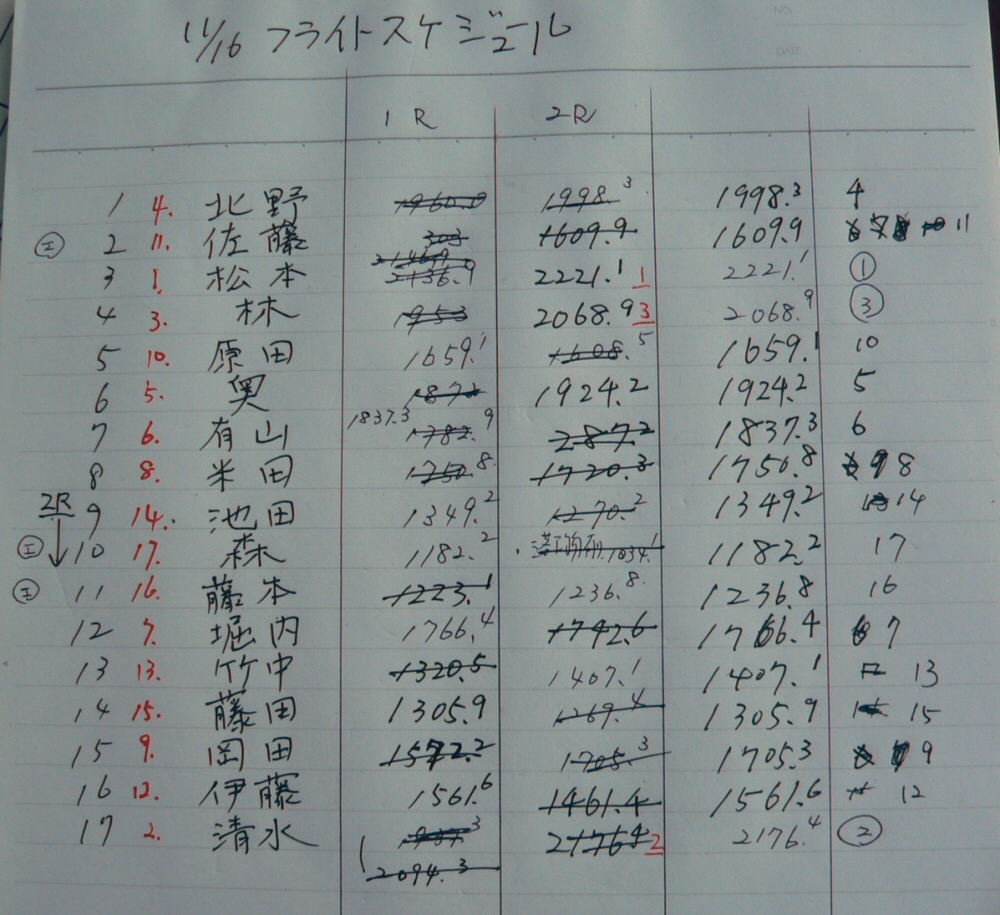 NO.
DATE
11/16 フライトスケジュール
1R 2R
1 4. 北野 1960.0 1998.3 1998.3 4
エ 2 11. 佐藤 1609.9 1609.9 11
3 1. 松本 2136.9 2221.1 1 2221.1 ①
4 3. 林 1953 2068.9 3 2068.9 ③
5 10. 原田 1659.1 1608.5 1659.1 10
6 5. 奥 1872 1924.2 1924.2 5
7 6. 有山 1837.3 1782.9 2872 1837.3 6
8 8. 米田 1250.8 1720.3 1756.8 9 8
2R 9 14. 池田 1349.2 1270.2 1349.2 14
エ 10 17. 森 1182.2 1034.1 1182.2 17
エ 11 16. 藤本 1223.1 1236.8 1236.8 16
12 7. 堀内 1766.4 1742.6 1766.4 7
13 13. 竹中 1320.5 1407.1 1407.1 13
14 15. 藤田 1305.9 1269.4 1305.9 15
15 9. 岡田 1572.2 1705.3 1705.3 9
16 12. 伊藤 1561.6 1461.4 1561.6 12
17 2. 清水 2176.4 2 2176.4 ②
2094.3